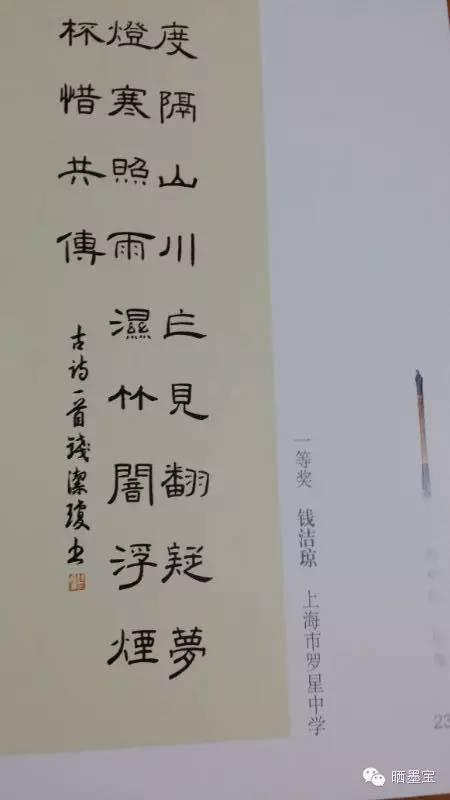 度隔山川乍見翻疑夢
燈寒照雨濕竹闇浮煙
杯惜共傳
古詩一首錢潔瓊書
一等奖 钱洁琼 上海市罗星中学
23
晒墨宝